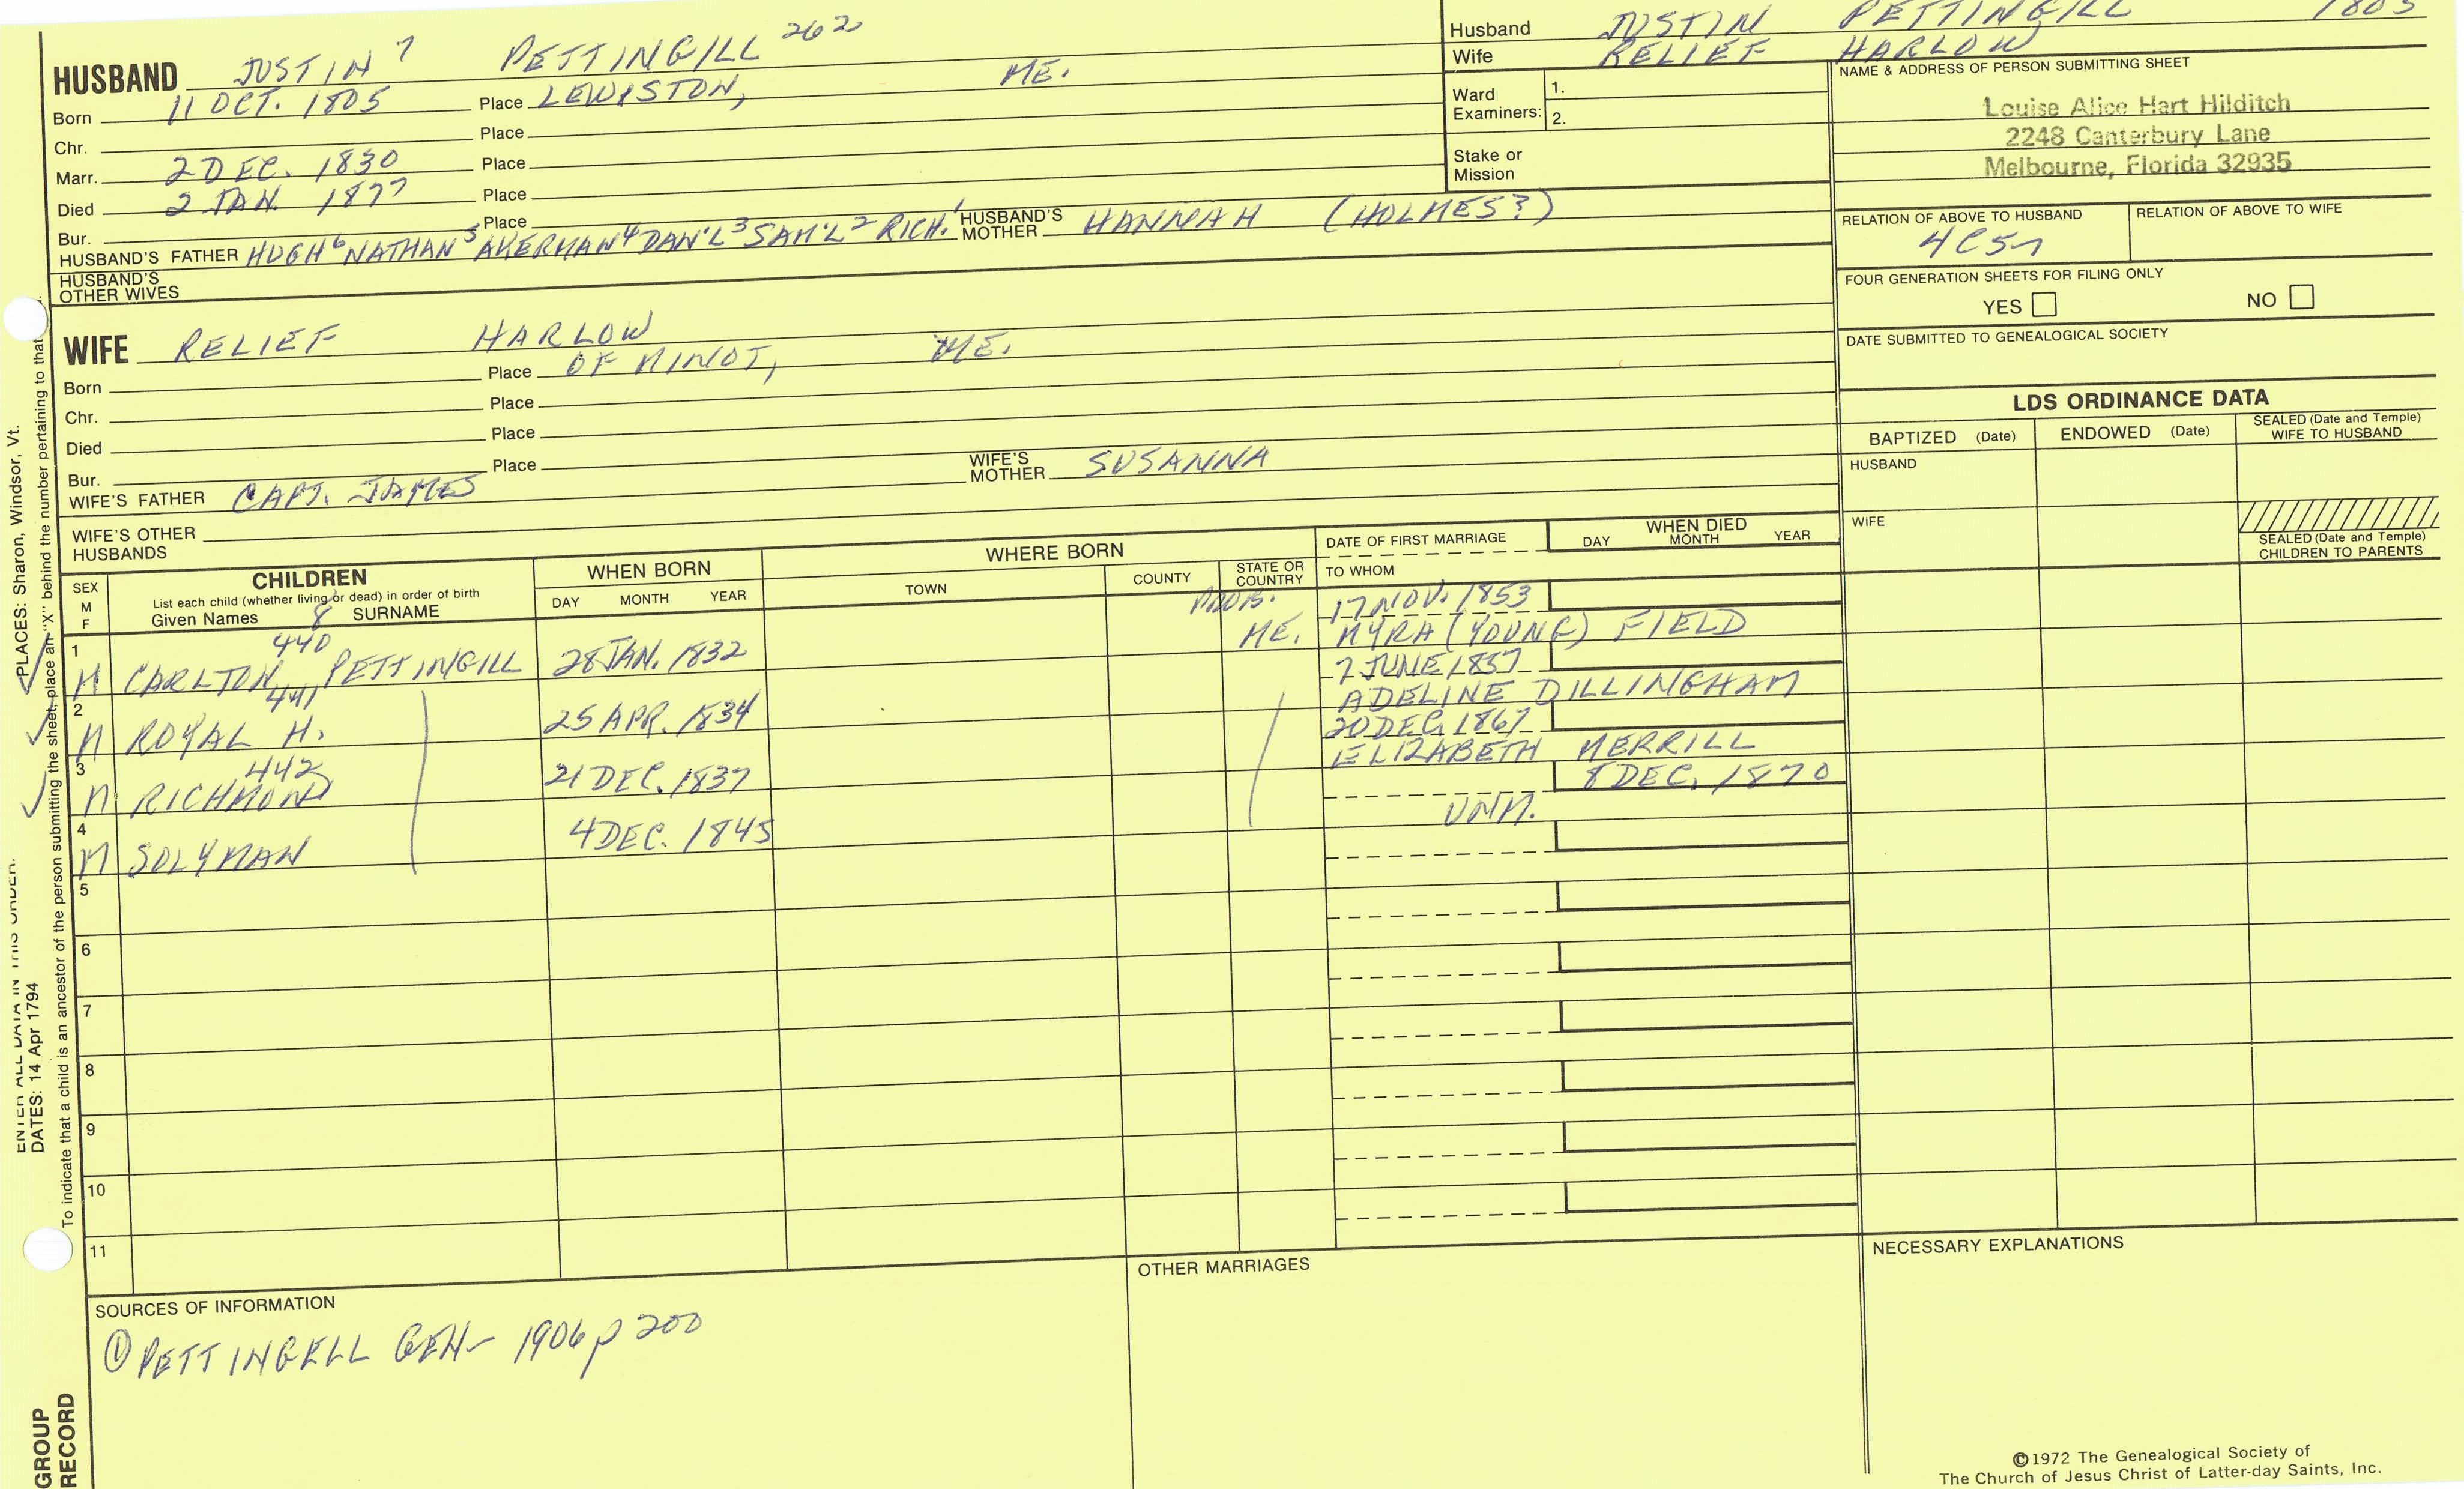 HUSBAND JUSTIN 7 PETTINGILL 262
Born 11 OCT. 1805 Place LEWISTON, ME.
Chr. Place
Marr. 2 DEC. 1830 Place
Died 2 JAN. 1877 Place
Bur. Place
HUSBAND'S FATHER HUGH 6 NATHAN 5 AKERMAN 4 DAN'L 3 SAM'L 2 RICH. 1 HUSBAND'S MOTHER HANNAH (HOLMES?)
HUSBAND'S OTHER WIVES
Husband JUSTIN PETTINGILL 1805
Wife RELIEF HARLOW
Ward Examiners: 1.
2.
Stake or Mission
NAME & ADDRESS OF PERSON SUBMITTING SHEET
Louise Alice Hart Hilditch
2248 Canterbury Lane
Melbourne, Florida 32935
RELATION OF ABOVE TO HUSBAND RELATION OF ABOVE TO WIFE
FOUR GENERATION SHEETS FOR FILING ONLY
YES NO
DATE SUBMITTED TO GENEALOGICAL SOCIETY
WIFE RELIEF HARLOW
Born Place OF MINOT, ME.
Chr. Place
Died Place
Bur. Place
WIFE'S FATHER CAPT. JAMES WIFE'S MOTHER SUSANNA
WIFE'S OTHER HUSBANDS
LDS ORDINANCE DATA
BAPTIZED (Date) ENDOWED (Date) SEALED (Date and Temple) WIFE TO HUSBAND
HUSBAND
WIFE
SEALED (Date and Temple) CHILDREN TO PARENTS
SEX M F
CHILDREN
List each child (whether living or dead) in order of birth
Given Names 8 SURNAME
WHEN BORN
DAY MONTH YEAR
WHERE BORN
TOWN COUNTY STATE OR COUNTRY
DATE OF FIRST MARRIAGE
TO WHOM
WHEN DIED
DAY MONTH YEAR
1 M CARLTON 440 PETTINGILL 28 JAN. 1832 PROB. ME. 17 NOV. 1853
MYRA (YOUNG) FIELD
2 M ROYAL H. 441 25 APR. 1834 7 JUNE 1857
ADELINE DILLINGHAM
3 M RICHMOND 442 21 DEC. 1837 20 DEC. 1867
ELIZABETH MERRILL
4 M SOLYMAN 4 DEC. 1845 8 DEC. 1870
UNM.
5
6
7
8
9
10
11
SOURCES OF INFORMATION
① PETTINGELL GEN- 1906 p 200
OTHER MARRIAGES
NECESSARY EXPLANATIONS
©1972 The Genealogical Society of
The Church of Jesus Christ of Latter-day Saints, Inc.
ENTER ALL DATA IN THIS ORDER:
DATES: 14 Apr 1794
PLACES: Sharon, Windsor, Vt.
To indicate that a child is an ancestor of the person submitting the sheet, place an "X" behind the number pertaining to that
GROUP
RECORD